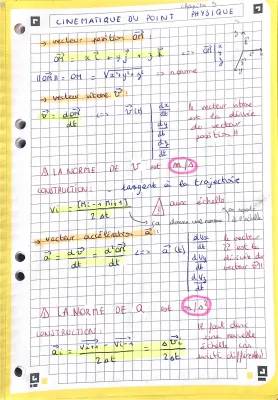 chapitre 3
CINEMATIQUE DU POINT PHYSIQUE
→ vecteur position OM :
OM = x i + y j + z k <=> OM
||OM|| = OM = √x²+y²+z² => norme
→ vecteur vitesse v :
v = dOM/dt <=> v(t) | dx/dt dy/dt dz/dt
le vecteur vitesse est la dérivée du vecteur position !!
⚠ LA NORME DE V est m/s
CONSTRUCTION : tangente à la trajectoire
Vi = [Mi-1 Mi+1] / 2Δt
⚠ avec échelle
ça donne une norme
→ vecteur accélération a :
a = dv/dt = d²OM/dt <=> a(t) | dvx/dt dvy/dt dvz/dt
le vecteur a est la dérivée du vecteur v !!
⚠ LA NORME DE a est m/s²
CONSTRUCTION :
ai = (Vi+1 - Vi-1) / 2Δt = Δvi / 2Δt
Il faut donc une nouvelle échelle car unité différente !